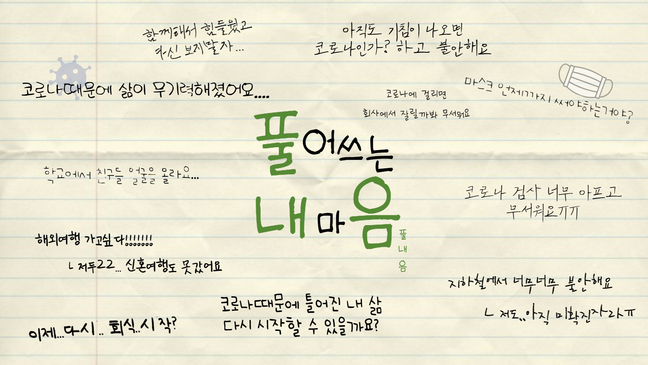 함께해서 힘들었고
다신 보지말자...
아직도 기침이 나오면
코로나인가? 하고 불안해요
코로나때문에 삶이 무기력해졌어요....
코로나에 걸리면
회사에서 잘릴까봐 무서워요
마스크 언제까지 써야하는거야?
풀어쓰는
내 마음
풀
내
음
학교에서 친구들 얼굴을 몰라요...
코로나 검사 너무 아프고
무서워요ㅠㅠ
해외여행 가고싶다!!!!!!!
ㄴ 저두22... 신혼여행도 못갔어요
지하철에서 너무너무 불안해요
ㄴ 저도..아직 미확진자라ㅠ
코로나때문에 틀어진 내 삶
다시 시작할 수 있을까요?
이제...다시.. 회식..시작?